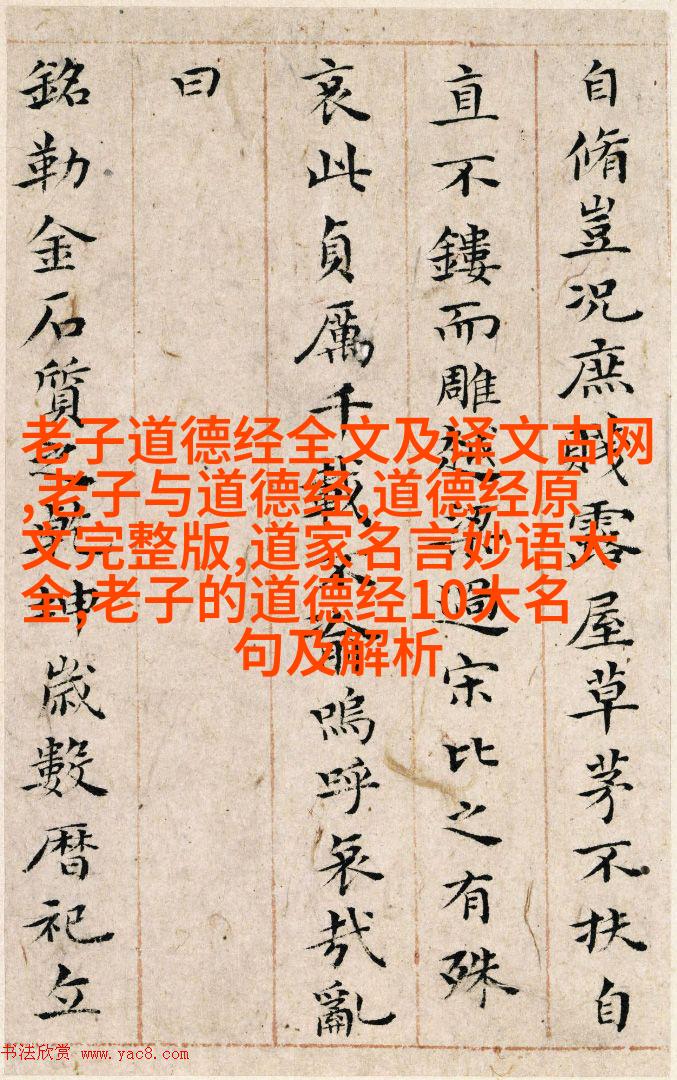 自脩豈況庶賤露屋草茅不扶自
直不鏤而雕越梁過宋比之有殊
哀此貞厲千載不渝嗚呼哀哉亂
曰
銘勒金石質之乾坤歲數曆祀立
老子道德经全文及译文古网
,老子与道德经,道德经原
文完整版,道家名言妙语大
全,老子的道德经10大名
句及解析
书法欣赏 www.yac8.com